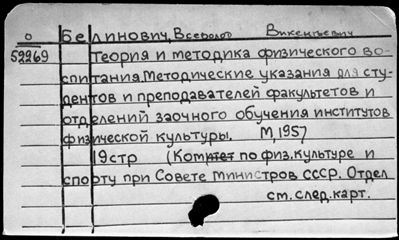 О Белинович, Всеволод Викентьевич
52269 Теория и методика физического во-
спитания. Методические указания для сту-
дентов и преподавателей факультетов и
отделений заочного обучения институтов
физической культуры. М, 1957
19стр (Комитет по физ.культуре и
спорту при Совете министров СССР. Отдел
см.след.карт.